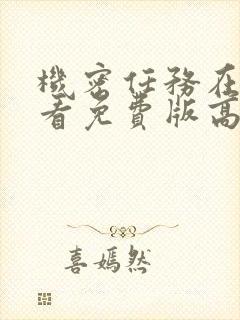 機密任務在
看免費版高
喜嫣然